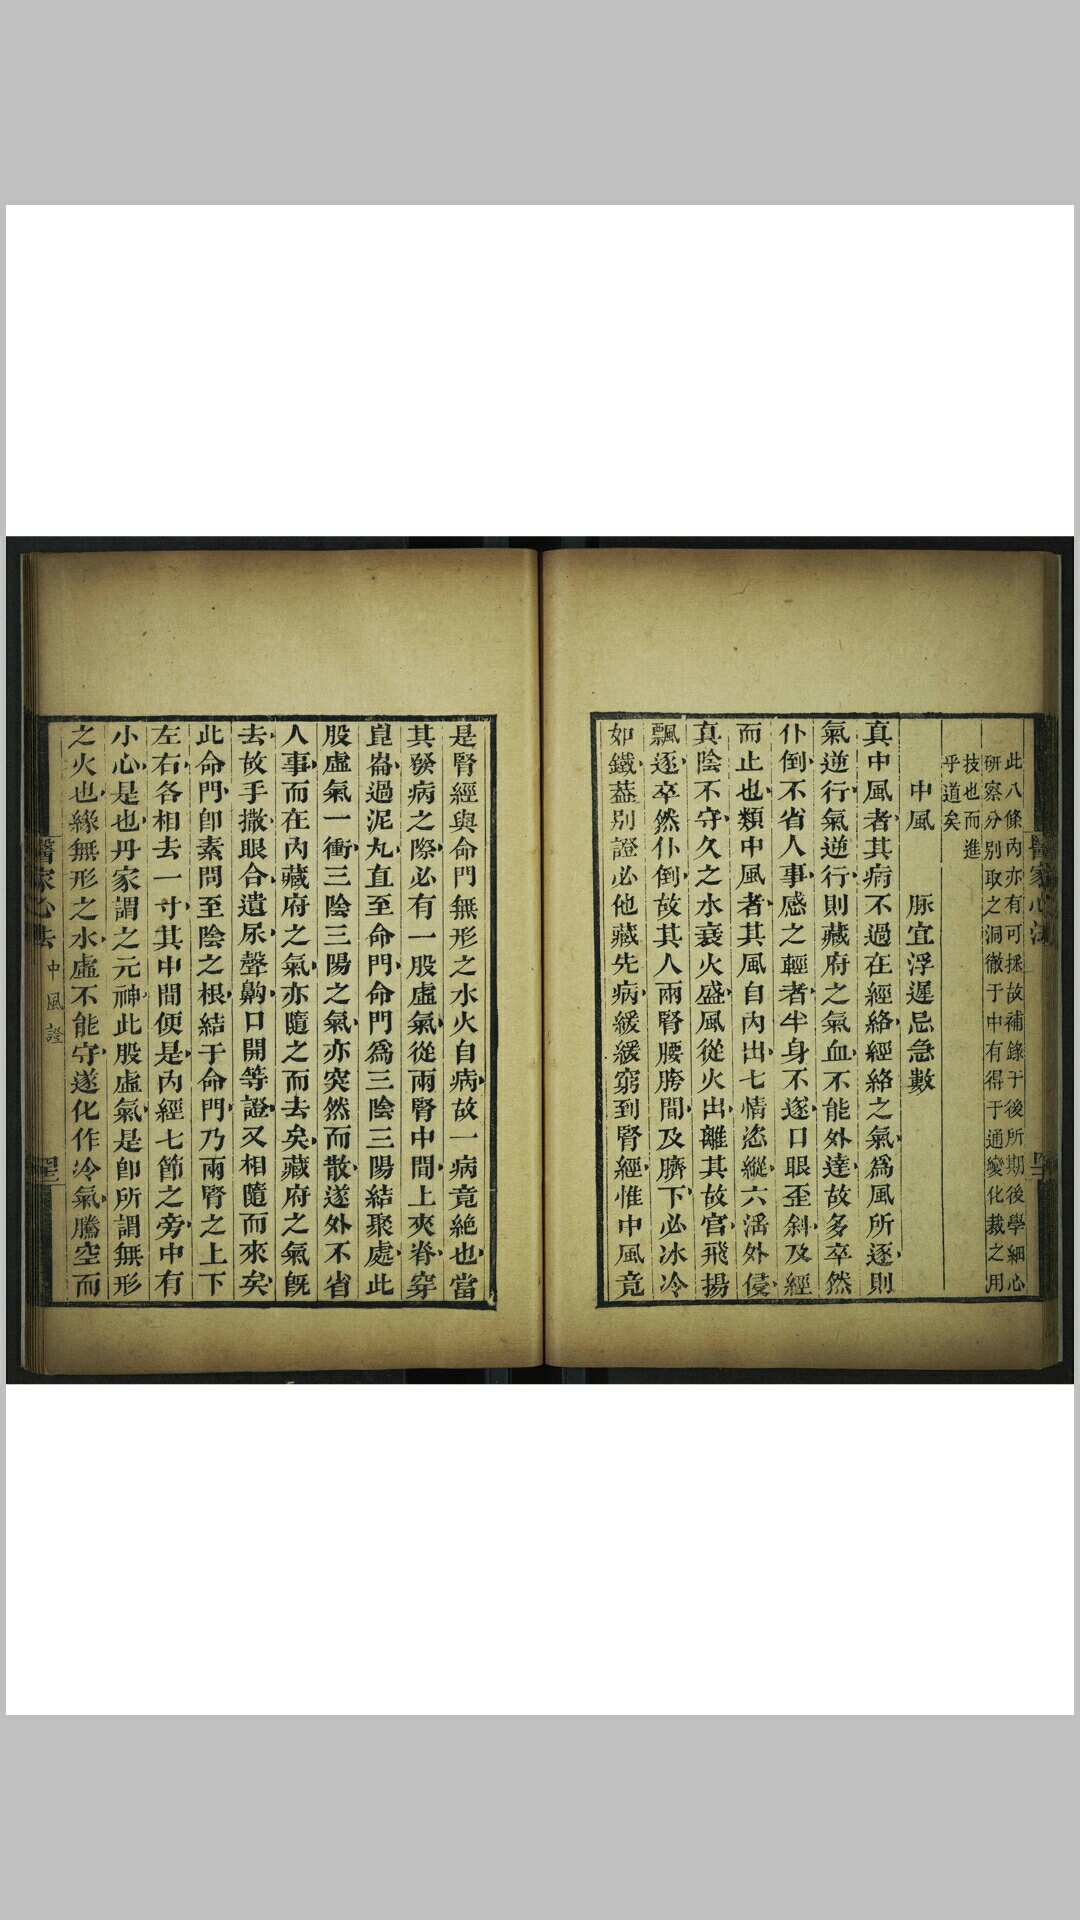 此八條內亦有可採故補錄于後所期後學細心
研察分別取之洞徹于中有得于通變化裁之用
技也而進
乎道矣
中風　　脉宜浮遲忌急數
真中風者其病不過在經絡經絡之氣爲風所逐則
氣逆行氣逆行則藏府之氣血不能外達故多卒然
仆倒不省人事感之輕者半身不遂口眼歪斜及經
而止也類中風者其風自內出七情恣縱六滛外侵
真陰不守久之水衰火盛風從火出離其故官飛揚
飄逐卒然仆倒故其人兩腎腰胯間及臍下必冰冷
如鐵葢別證必他藏先病緩緩窮到腎經惟中風竟
是腎經與命門無形之水火自病故一病竟絶也當
其發病之際必有一股虛氣從兩腎中間上夾脊穿
崑崙過泥丸直至命門命門爲三陰三陽結聚處此
股虛氣一衝三陰三陽之氣亦突然而散遂外不省
人事而在內藏府之氣亦隨之而去矣藏府之氣旣
去故手撒眼合遺尿聲鼾口開等證又相隨而來矣
此命門卽素問至陰之根結于命門乃兩腎之上下
左右各相去一寸其中間便是內經七節之旁中有
小心是也丹家謂之元神此股虛氣是卽所謂無形
之火也緣無形之水虛不能守遂化作冷氣騰空而
醫家心法
中風證